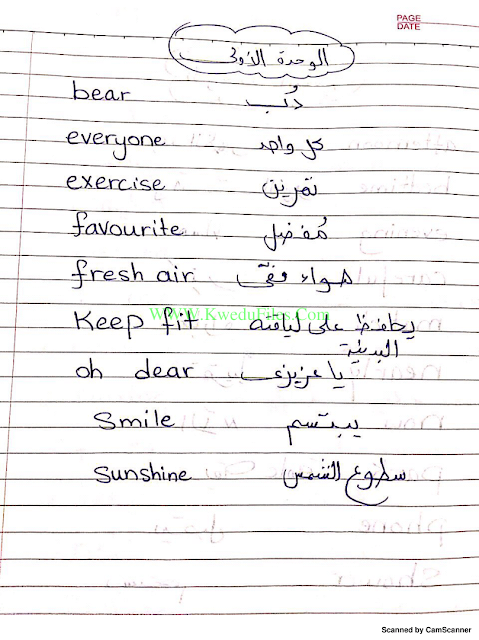 PAGE
DATE
الوحدة الأولى
bear دُب
everyone كل واحد
exercise تمرين
favourite مُفضل
fresh air هواء نقى
WWW.KweduFiles.Com
Keep fit يحافظ على لياقته
البدنية
oh dear يا عزيزى
Smile يبتسم
Sunshine سطوع الشمس
Scanned by CamScanner